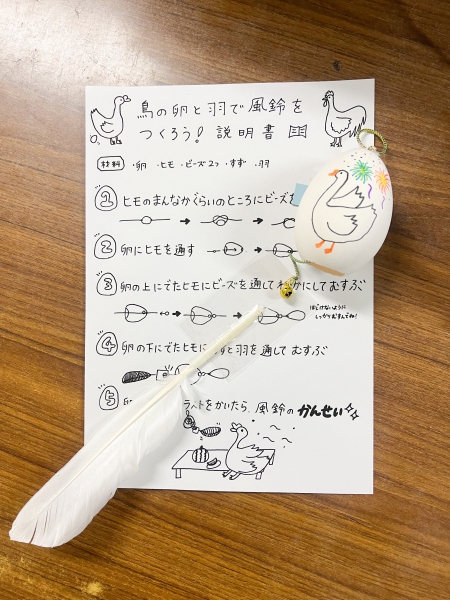 鳥の卵と羽で風鈴を
つくろう! 説明書
材料 ・卵 ・ヒモ ・ビーズ2つ ・すず ・羽
① ヒモのまんなかぐらいのところにビーズを
② 卵にヒモを通す
③ 卵の上にでたヒモにビーズを通して かにしてむすぶ
ほどけないように
しっかりむすんでね!
④ 卵の下にでたヒモに と羽を通して むすぶ
⑤ ラストをかいたら、風鈴の かんせい